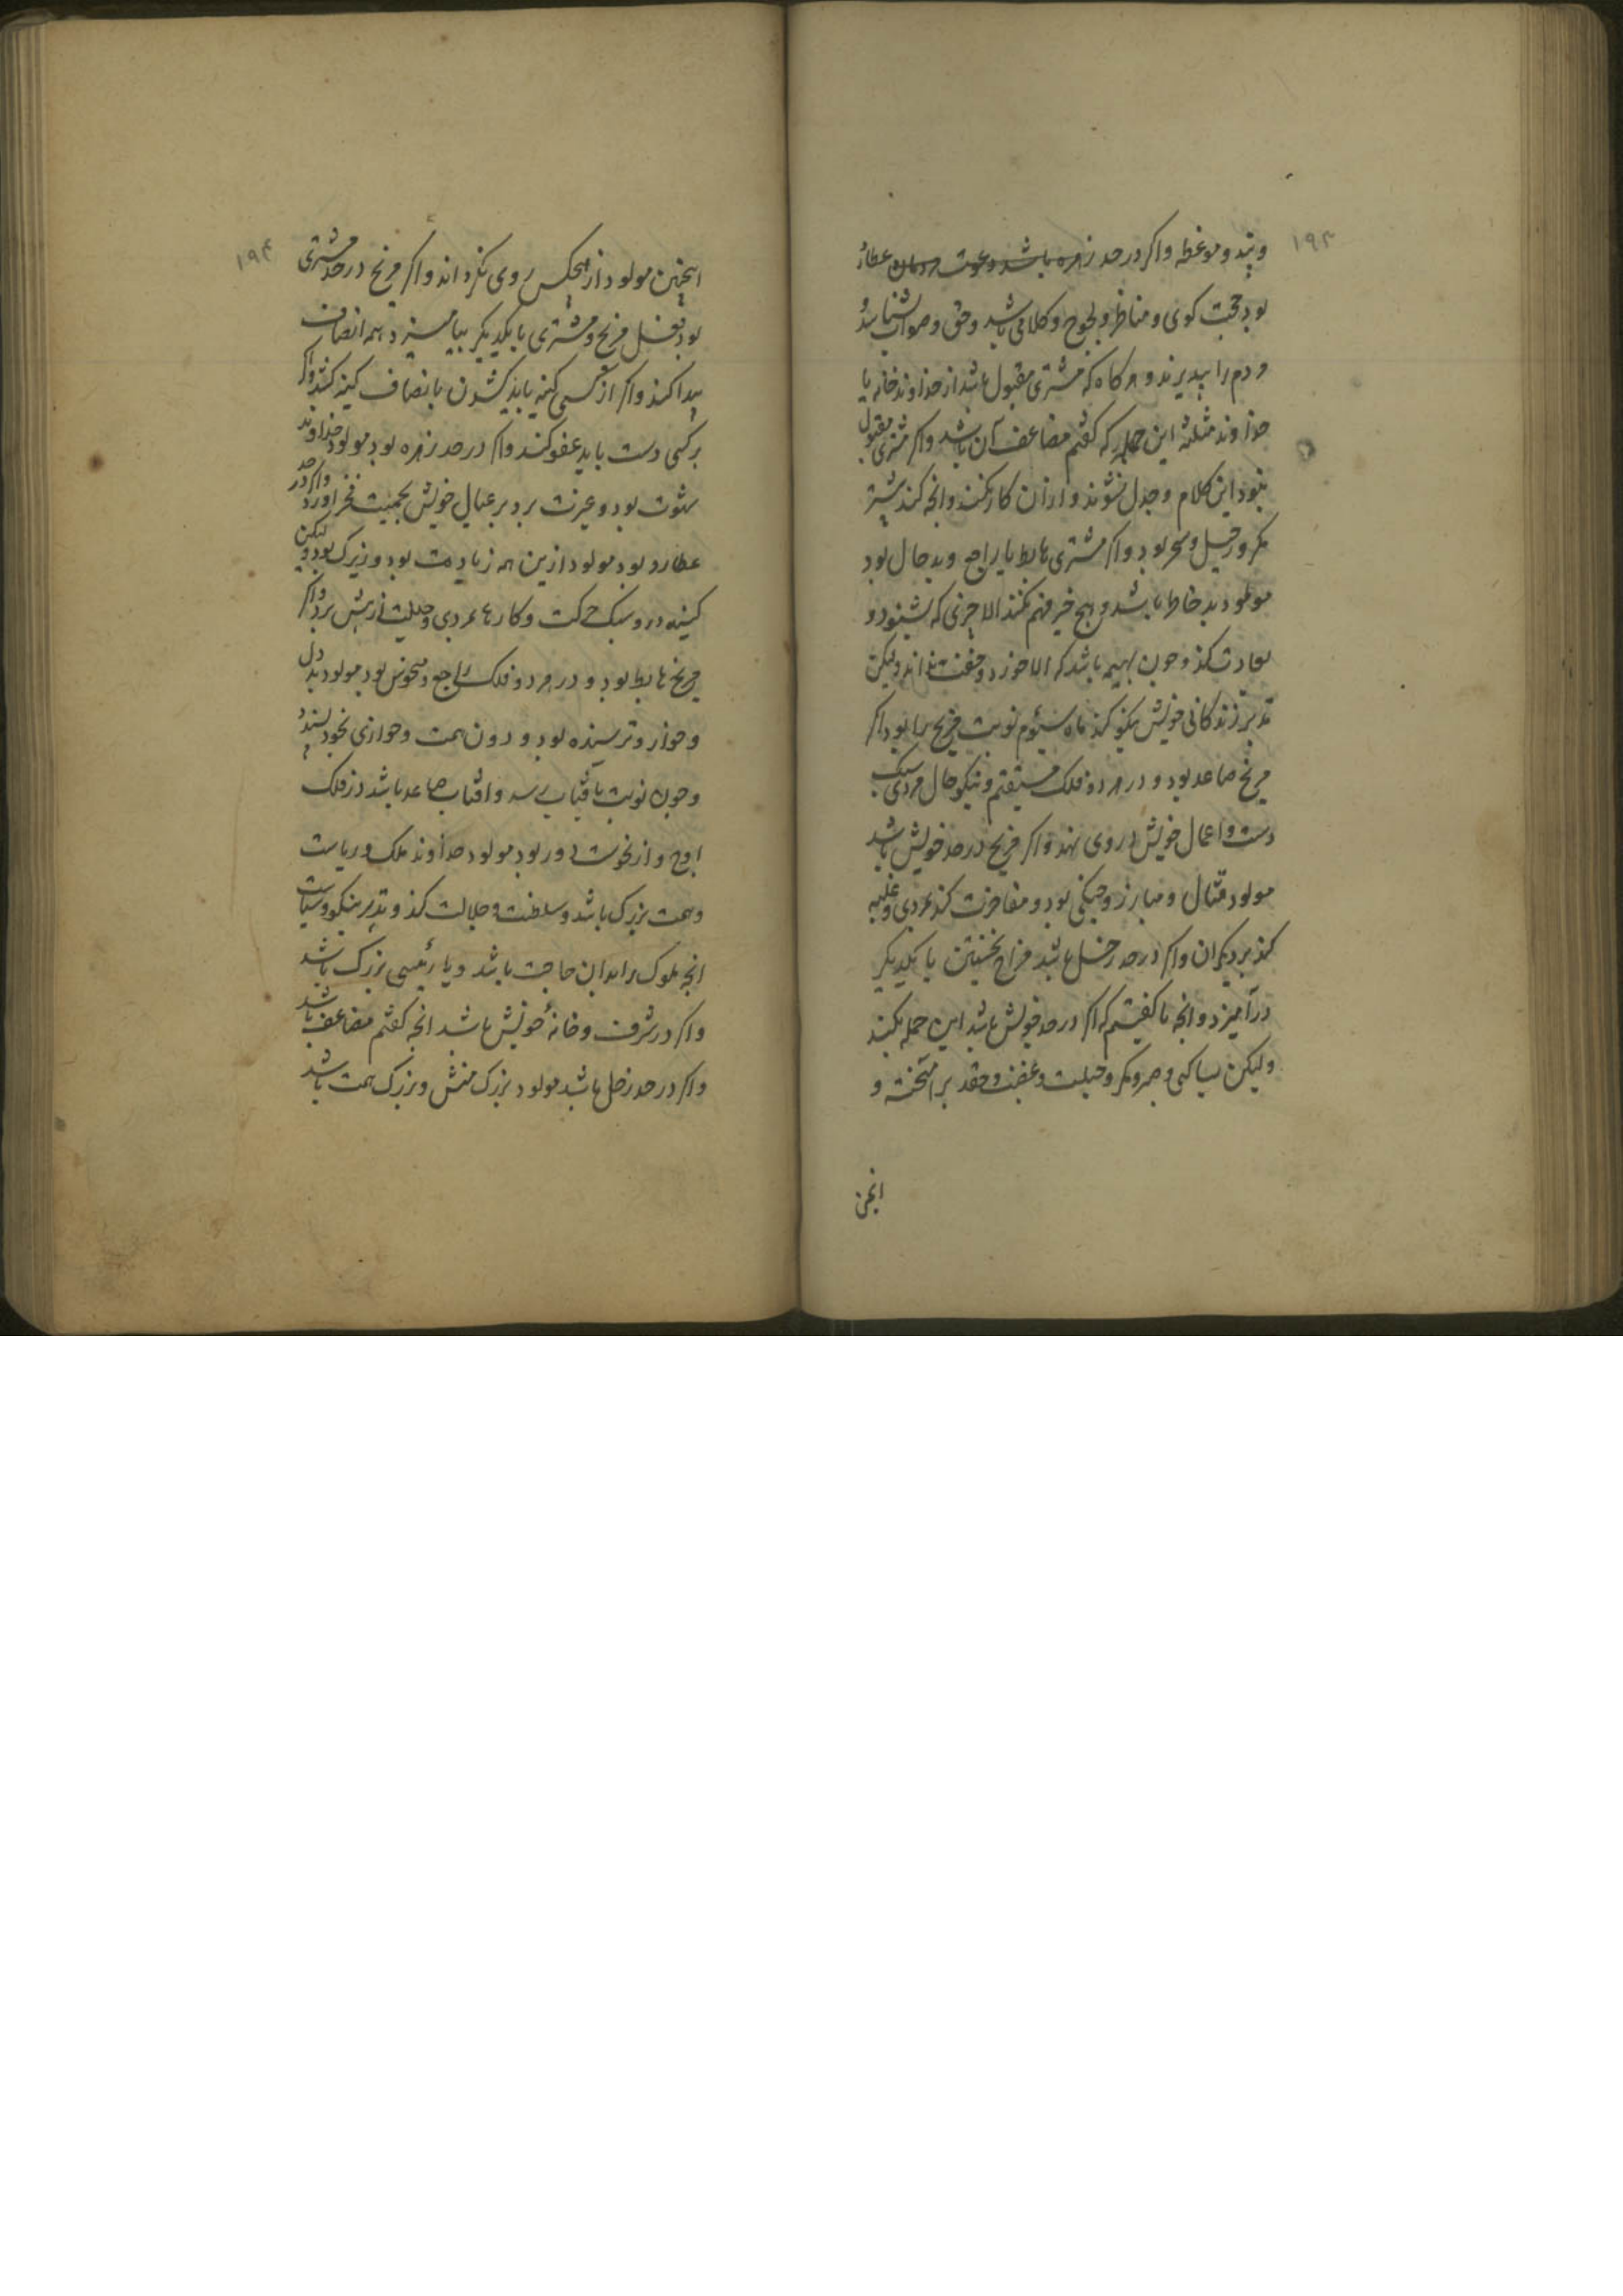 ۱۹۳
و پند و موعظه و اکر در حد زهره باشد دعوت مردمان عطارد
بود حجت کوی و مناظر و لجوج و کلامی باشد و حق و صواب شناسد
مردم را بپذیرند و هر کاه که مشتری مقبول باشد از خداوند خانه یا
خداوند مثلثه این جمله که کفتم مضاعف آن باشد و اکر مشتری مقبول
نبود این کلام و جدل نشوند و از آن کار نکنند و انچه کند بیشتر
مکر و حیل و سحر بود و اکر مشتری هابط یا راجع و بدحال بود
مولود بد خاطر باشد و هیچ خبر فهم نکند الا چیزی که بشنود و
عادت کند و چون بهیمه باشد که الا خورد و خفت نداند ولیکن
تدبیر زندکانی خویش نیکو کند ماه سیوم نوبت مریخ را بود اکر
مریخ صاعد بود و در هر دو فلک مستقیم و نیکو حال مردی سبک
دست و اعمال خویش در وی نهد و اکر مریخ در حد خویش باشد
مولود قتال و مبارز و جنکی بود و مفاخرت کند بمردی و غلبه
کند بر دیکران و اکر در حد زحل باشد مزاج نحسین با یکدیکر
درآمیزد و انچه ما کفتیم که اکر در حد خویش باشد این جمله بکند
ولیکن بباکی و صبر و مکر و حیلت و غضب و حقد برآمیخته و
اینچنین
۱۹۴
اینچنین مولود از هیچکس روی نکرداند و اکر مریخ در حد مشتری
بود فعل مریخ و مشتری با یکدیکر بیامیزد و همه انصاف
پیدا کند و اکر از کسی کینه باید کشیدن بانصاف کینه کشد و اکر
بر کسی دست یابد عفو کند و اکر در حد زهره بود مولود خداوند
شهوت بود و غیرت برد بر عیال خویش بحمیت فخر آورد و اکر در حد
عطارد بود مولود ازین همه زیادت بود و زیرک بود ولیکن
کینه‌ور و سبک حرکت و کارها بمردی و حیلت از پیش برد و اکر
مریخ هابط بود و در هر دو فلک راجع و منحوس بود مولود بددل
و خوار و ترسنده بود و دون همت و خواری بخود پسندد
و چون نوبت بآفتاب رسد و افتاب صاعد باشد در فلک
اوج و از نحوست دور بود مولود خداوند ملک و ریاست
و همت بزرک باشد و سلطنت و جلالت کند و تدبیر نیکو و سیاست
انچه ملوک را بدان حاجت باشد و یا رئیسی بزرک باشد
و اکر در شرف و خانهٔ خویش باشد انچه کفتم مضاعف باشد
و اکر در حد زحل باشد مولود بزرک منش و بزرک همت باشد